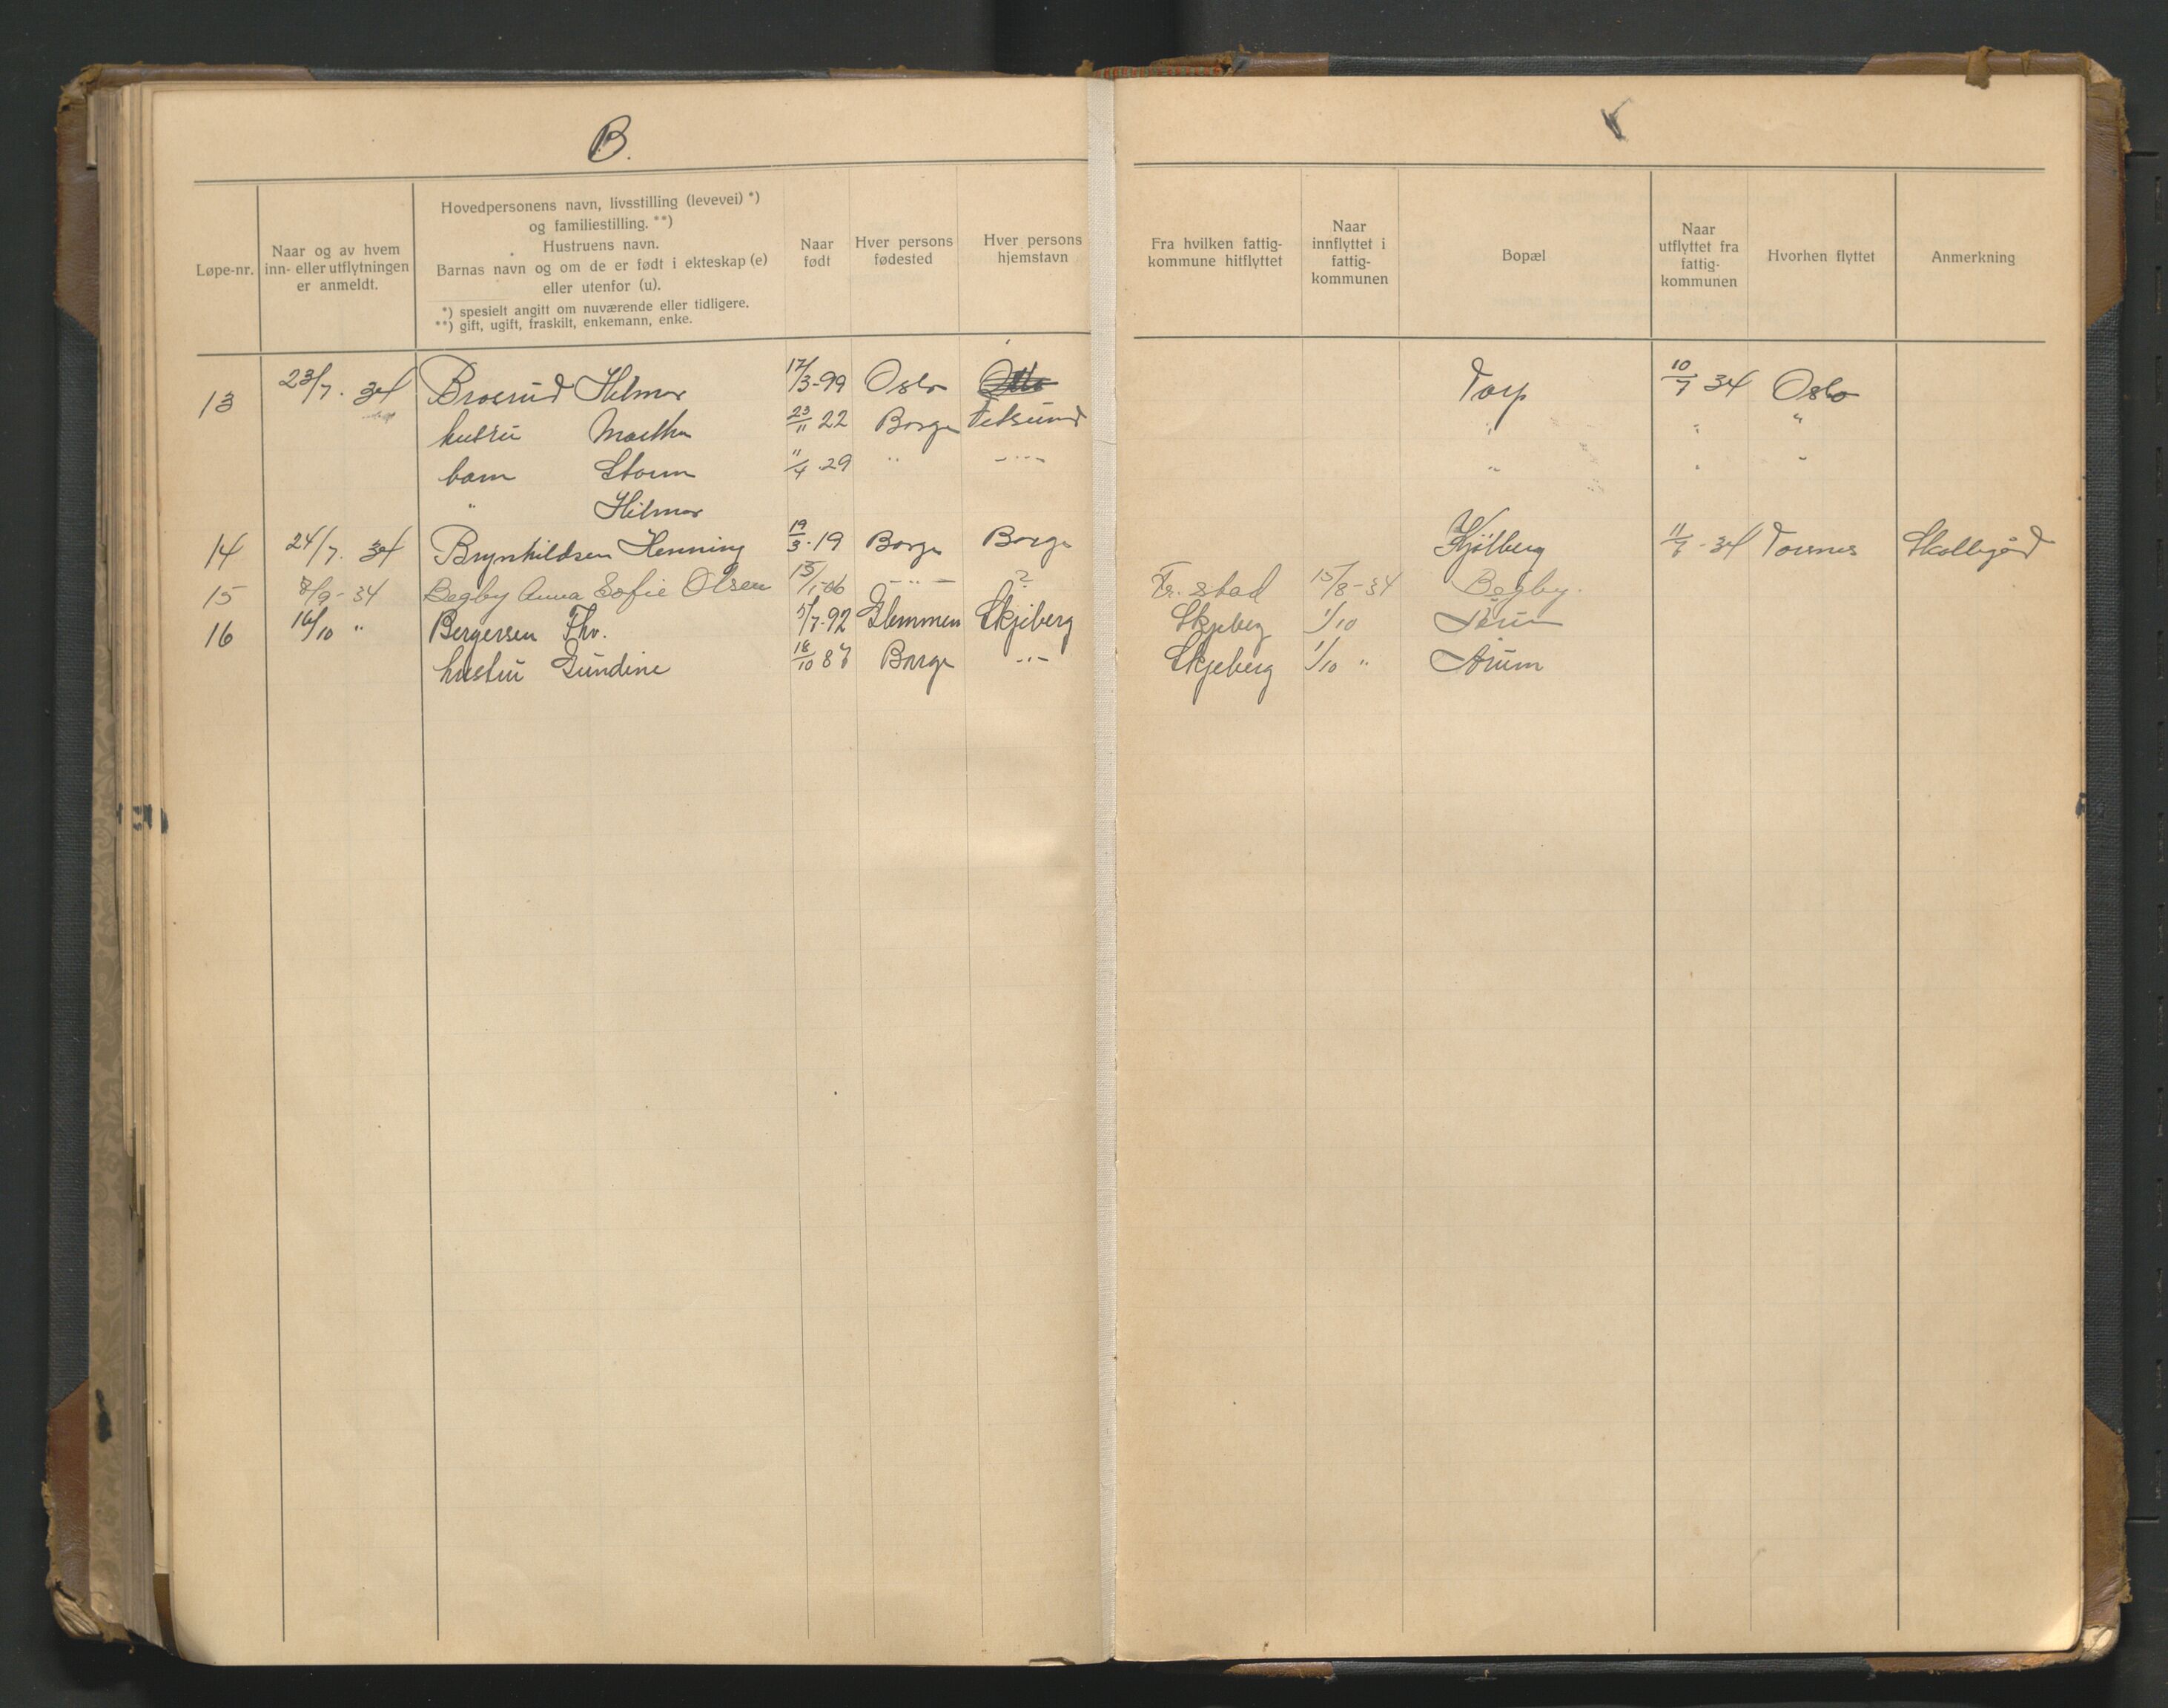 B.
Løpe-nr.
Naar og av hvem
inn- eller utflytningen
er anmeldt.
Hovedpersonens navn, livsstilling (levevei) *)
og familiestilling. **)
Hustruens navn.
Barnas navn og om de er født i ekteskap (e)
eller utenfor (u).
*) spesielt angitt om nuværende eller tidligere.
**) gift, ugift, fraskilt, enkemann, enke.
Naar
født
Hver persons
fødested
Hver persons
hjemstavn
Fra hvilken fattig-
kommune hitflyttet
Naar
innflyttet i
fattig-
kommunen
Bopæl
Naar
utflyttet fra
fattig-
kommunen
Hvorhen flyttet
Anmerkning
13 23/7. 34 Braerud Hilmar 17/3-99 Oslo Torp 10/7 34 Oslo
hustru Martha 23/11 22 Borge Fetsund " " "
barn Storm 11/4.29 " -"- " " "
" Hilmar
14 24/7. 34 Brynhildsen Henning 19/3.19 Borge Borge Kjølberg 11/7-34 Torsnes Skollegård
15 8/9-34 Begby Anna Sofie Olsen 15/1-06 -"- ? Fr.stad 15/8-34 Begby.
16 16/10 " Bergersen Thv. 5/7-92 Glemmen Skjeberg Skjeberg 1/10
hustru Gundine 18/10 87 Borge -"- Skjeberg 1/10 " Årum